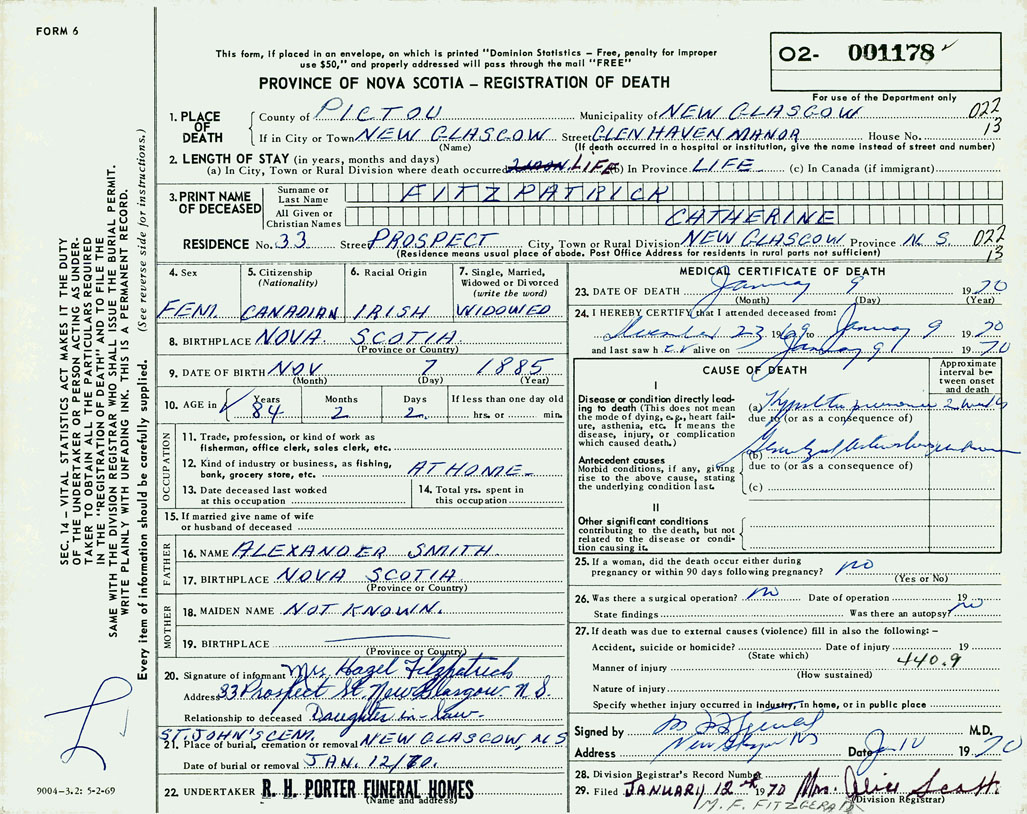 FORM 6
This form, if placed in an envelope, on which is printed "Dominion Statistics – Free, penalty for improper
use $50," and properly addressed will pass through the mail "FREE"
PROVINCE OF NOVA SCOTIA – REGISTRATION OF DEATH
02- 001178
For use of the Department only
1. PLACE OF DEATH
County of PICTOU Municipality of NEW GLASGOW 022
If in City or Town NEW GLASGOW Street GLENHAVEN MANOR House No. 13
(Name) (If death occurred in a hospital or institution, give the name instead of street and number)
2. LENGTH OF STAY (in years, months and days)
(a) In City, Town or Rural Division where death occurred LIFE (b) In Province LIFE (c) In Canada (if immigrant)
3. PRINT NAME OF DECEASED
Surname or Last Name FITZPATRICK
All Given or Christian Names CATHERINE
RESIDENCE No. 33 Street PROSPECT City, Town or Rural Division NEW GLASGOW Province N.S. 022
(Residence means usual place of abode. Post Office Address for residents in rural parts not sufficient) 13
4. Sex FEM.
5. Citizenship (Nationality) CANADIAN
6. Racial Origin IRISH
7. Single, Married, Widowed or Divorced (write the word) WIDOWED
8. BIRTHPLACE NOVA SCOTIA
(Province or Country)
9. DATE OF BIRTH NOV 7 1885
(Month) (Day) (Year)
10. AGE in Years 84 Months 2 Days 2 If less than one day old hrs. or min.
OCCUPATION
11. Trade, profession, or kind of work as
fisherman, office clerk, sales clerk, etc.
12. Kind of industry or business, as fishing,
bank, grocery store, etc. AT HOME
13. Date deceased last worked
at this occupation
14. Total yrs. spent in
this occupation
15. If married give name of wife
or husband of deceased
FATHER
16. NAME ALEXANDER SMITH
17. BIRTHPLACE NOVA SCOTIA
(Province or Country)
MOTHER
18. MAIDEN NAME NOT KNOWN.
19. BIRTHPLACE
(Province or Country)
20. Signature of informant Mrs Hazel Fitzpatrick
Address 33 Prospect St. New Glasgow N.S.
Relationship to deceased Daughter-in-law.
ST. JOHN'S CEM.
21. Place of burial, cremation or removal NEW GLASGOW, N.S
Date of burial or removal JAN. 12/70.
22. UNDERTAKER R. H. PORTER FUNERAL HOMES
(Name and address)
MEDICAL CERTIFICATE OF DEATH
23. DATE OF DEATH January 9 1970
(Month) (Day) (Year)
24. I HEREBY CERTIFY that I attended deceased from:
December 23 1969 to January 9 1970
and last saw h er alive on January 9 1970
CAUSE OF DEATH
Approximate interval between onset and death
I
Disease or condition directly leading to death (This does not mean the mode of dying, e.g., heart failure, asthenia, etc. It means the disease, injury, or complication which caused death.)
(a) pneumonia 2 weeks
due to (or as a consequence of)
Antecedent causes
Morbid conditions, if any, giving rise to the above cause, stating the underlying condition last.
(b)
due to (or as a consequence of)
(c)
II
Other significant conditions
contributing to the death, but not related to the disease or condition causing it.
25. If a woman, did the death occur either during
pregnancy or within 90 days following pregnancy? no
(Yes or No)
26. Was there a surgical operation? no Date of operation 19
State findings Was there an autopsy? no
27. If death was due to external causes (violence) fill in also the following: –
Accident, suicide or homicide? Date of injury 19
(State which) 440.9
Manner of injury
(How sustained)
Nature of injury
Specify whether injury occurred in industry, in home, or in public place
Signed by M.D.
Address New Glasgow NS Date Jan 10 1970
28. Division Registrar's Record Number
29. Filed JANUARY 12th 1970 Mrs. Alice Scott
(Division Registrar)
M. F. FITZGERALD
SEC. 14 – VITAL STATISTICS ACT MAKES IT THE DUTY
OF THE UNDERTAKER OR PERSON ACTING AS UNDER-
TAKER TO OBTAIN ALL THE PARTICULARS REQUIRED
IN THE "REGISTRATION OF DEATH" AND TO FILE THE
SAME WITH THE DIVISION REGISTRAR WHO SHALL ISSUE THE BURIAL PERMIT.
WRITE PLAINLY WITH UNFADING INK. THIS IS A PERMANENT RECORD.
Every item of information should be carefully supplied. (See reverse side for instructions.)
9004-3.2: 5-2-69